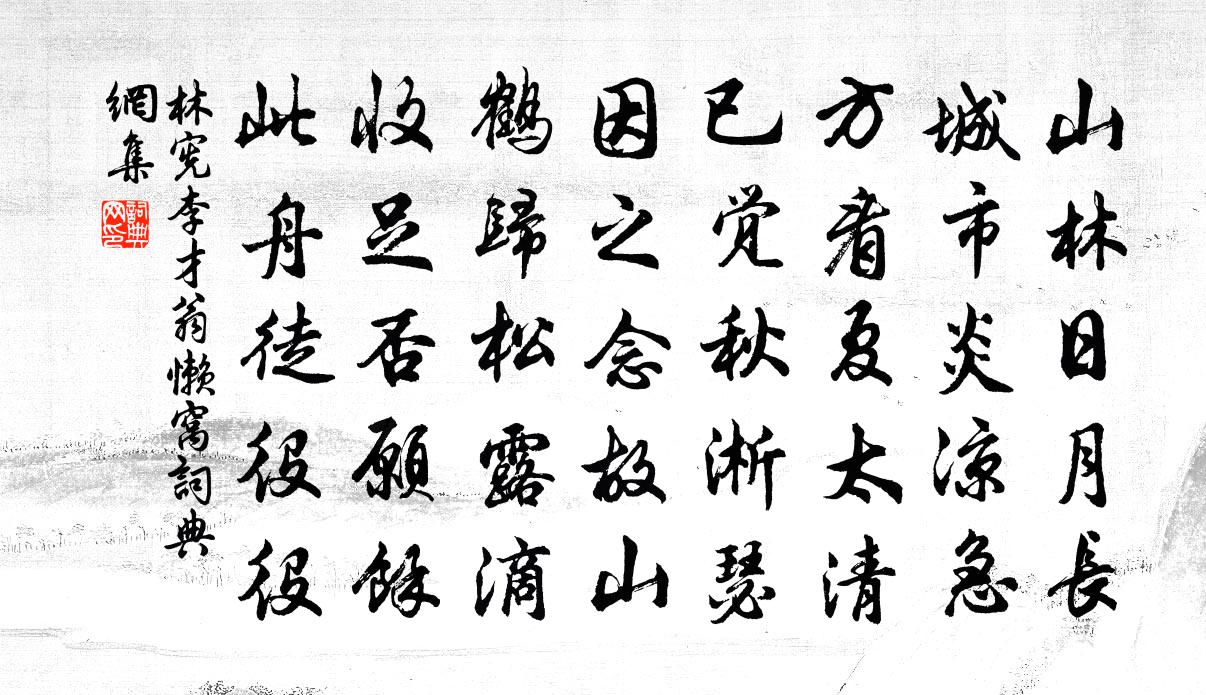 山林日月長
城市炎涼急
方看夏太清
已觉秋淅瑟
因之念故山
鶴歸松露滴
收足否願餘
此舟徒役役
林宪李才翁懒窝詞典
網集
詞典
网印